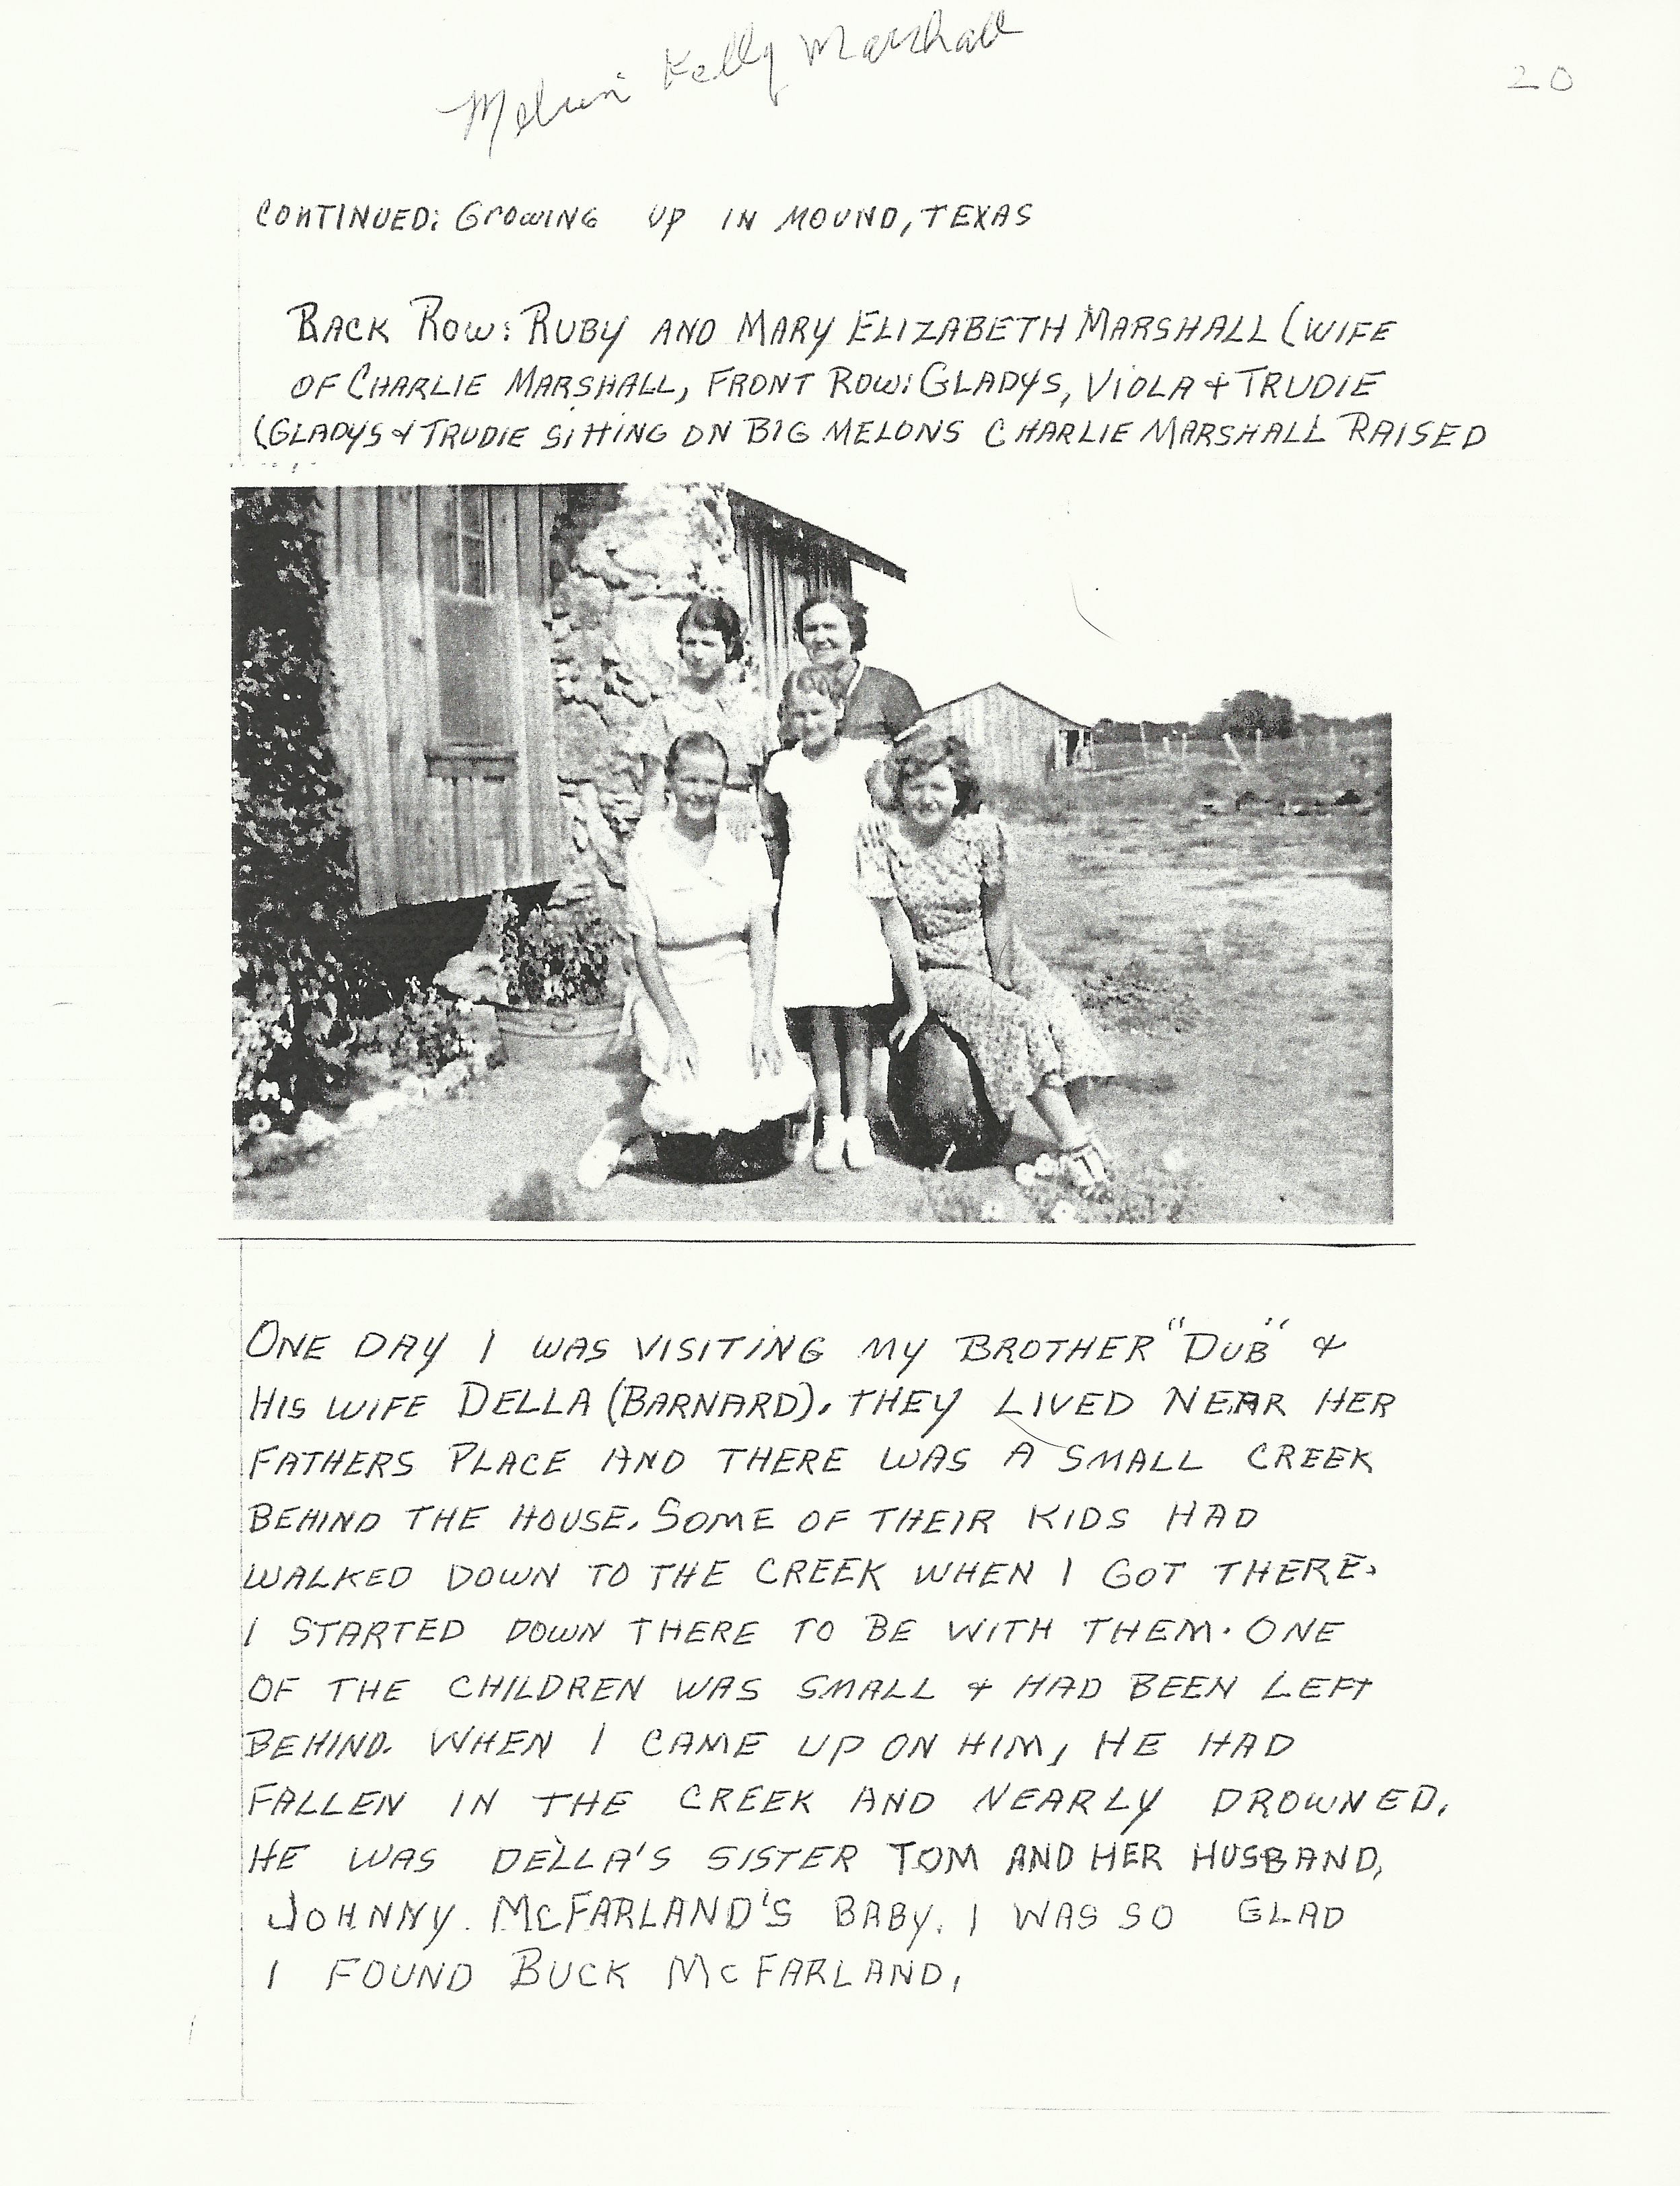 Melvin Kelly Marshall
20
CONTINUED: GROWING UP IN MOUND, TEXAS
BACK ROW: RUBY AND MARY ELIZABETH MARSHALL (WIFE
OF CHARLIE MARSHALL, FRONT ROW: GLADYS, VIOLA & TRUDIE
(GLADYS & TRUDIE SITTING ON BIG MELONS CHARLIE MARSHALL RAISED
ONE DAY I WAS VISITING MY BROTHER "DUB" &
HIS WIFE DELLA (BARNARD). THEY LIVED NEAR HER
FATHERS PLACE AND THERE WAS A SMALL CREEK
BEHIND THE HOUSE. SOME OF THEIR KIDS HAD
WALKED DOWN TO THE CREEK WHEN I GOT THERE.
I STARTED DOWN THERE TO BE WITH THEM. ONE
OF THE CHILDREN WAS SMALL & HAD BEEN LEFT
BEHIND. WHEN I CAME UP ON HIM, HE HAD
FALLEN IN THE CREEK AND NEARLY DROWNED.
HE WAS DELLA'S SISTER TOM AND HER HUSBAND,
JOHNNY. MCFARLAND'S BABY. I WAS SO GLAD
I FOUND BUCK MCFARLAND.